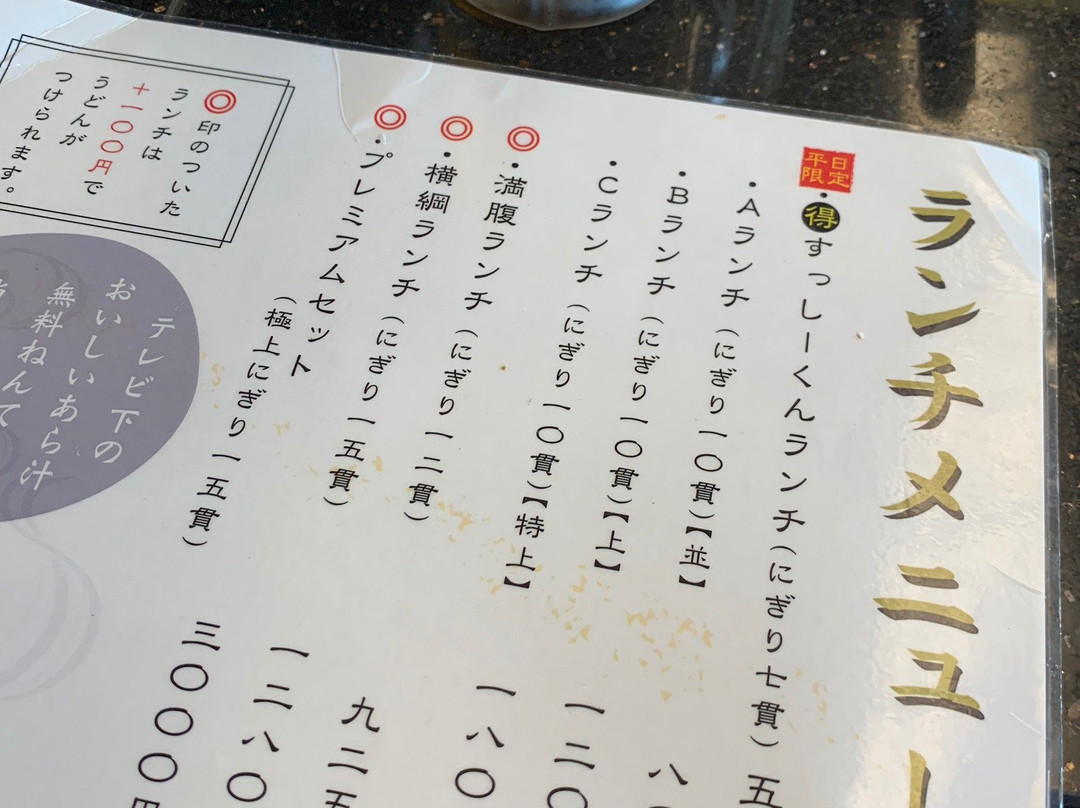 ランチメニュー
平日限定
・得すっしーくんランチ（にぎり七貫） 五
・Aランチ（にぎり一〇貫）【並】 八
・Bランチ（にぎり一〇貫）【上】 一二〇
・Cランチ（にぎり一〇貫）【特上】 一八〇
◎・満腹ランチ（にぎり一二貫） 九二五
◎・横綱ランチ（にぎり一五貫） 一二八〇
◎・プレミアムセット
（極上にぎり一五貫） 三〇〇〇円
◎印のついた
ランチは
＋一〇〇円で
うどんが
つけられます。
テレビ下の
おいしいあら汁
無料ねんて